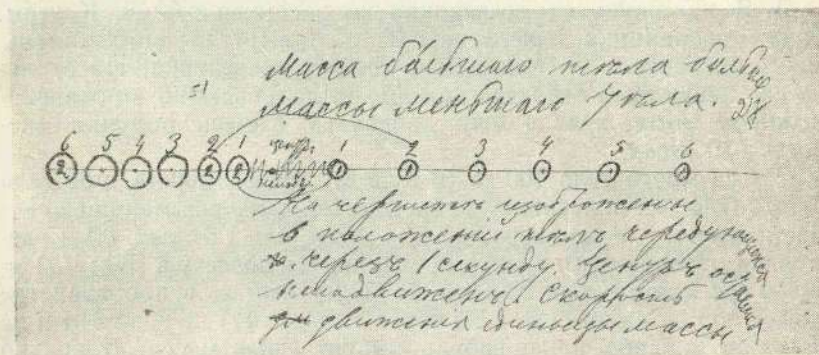 Масса большаго тѣла больше
массы меньшаго тѣла.
51
6 5 4 3 2 1 1 2 3 4 5 6
2 2 2 1 1
На чертежѣ изображены
6 положеній тѣлъ чередующихся
черезъ 1 секунду. Центръ остается
неподвиженъ. Скорость
движенія единицы массы